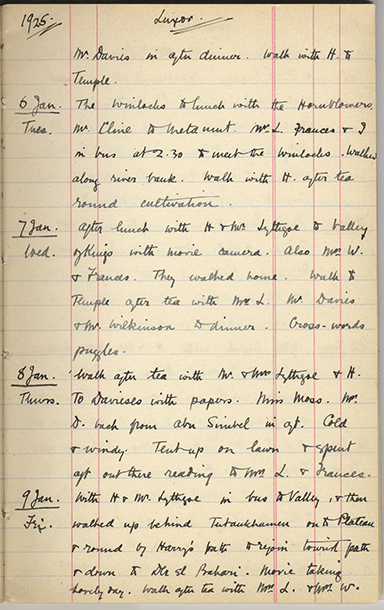 1925. Luxor.
Mr. Davies in after dinner. Walk with H. to
Temple.
6 Jan. The Winlocks to lunch with the Hornblowers.
Tues. Mr. Cline to Metamut. Mrs. L. Frances & I
in bus at 2.30 to meet the Winlocks. Walked
along river bank. Walk with H. after tea
round cultivation.
7 Jan. After lunch with H & Mr. Lythgoe to Valley
Wed. of Kings with movie camera. Also Mrs. W.
& Frances. They walked home. Walk to
Temple after tea with Mrs. L. Mr. Davies
& Mr. Wilkinson to dinner. Cross-words
puzzles.
8 Jan. Walk after tea with Mr. & Mrs. Lythgoe & H.
Thurs. To Davieses with papers. Miss Moss. Mr.
D. back from Abu Simbel in aft. Cold
& windy. Tent up on lawn & spent
aft out there reading to Mrs. L. & Frances.
9 Jan. With H & Mr. Lythgoe in bus to Valley, & then
Fri. walked up behind Tutankhamen on to Plateau
& round by Harry's path to rejoin tourist path
& down to Der el Bahari. Movie taking
lovely day. Walk after tea with Mrs. L. & Mrs. W.